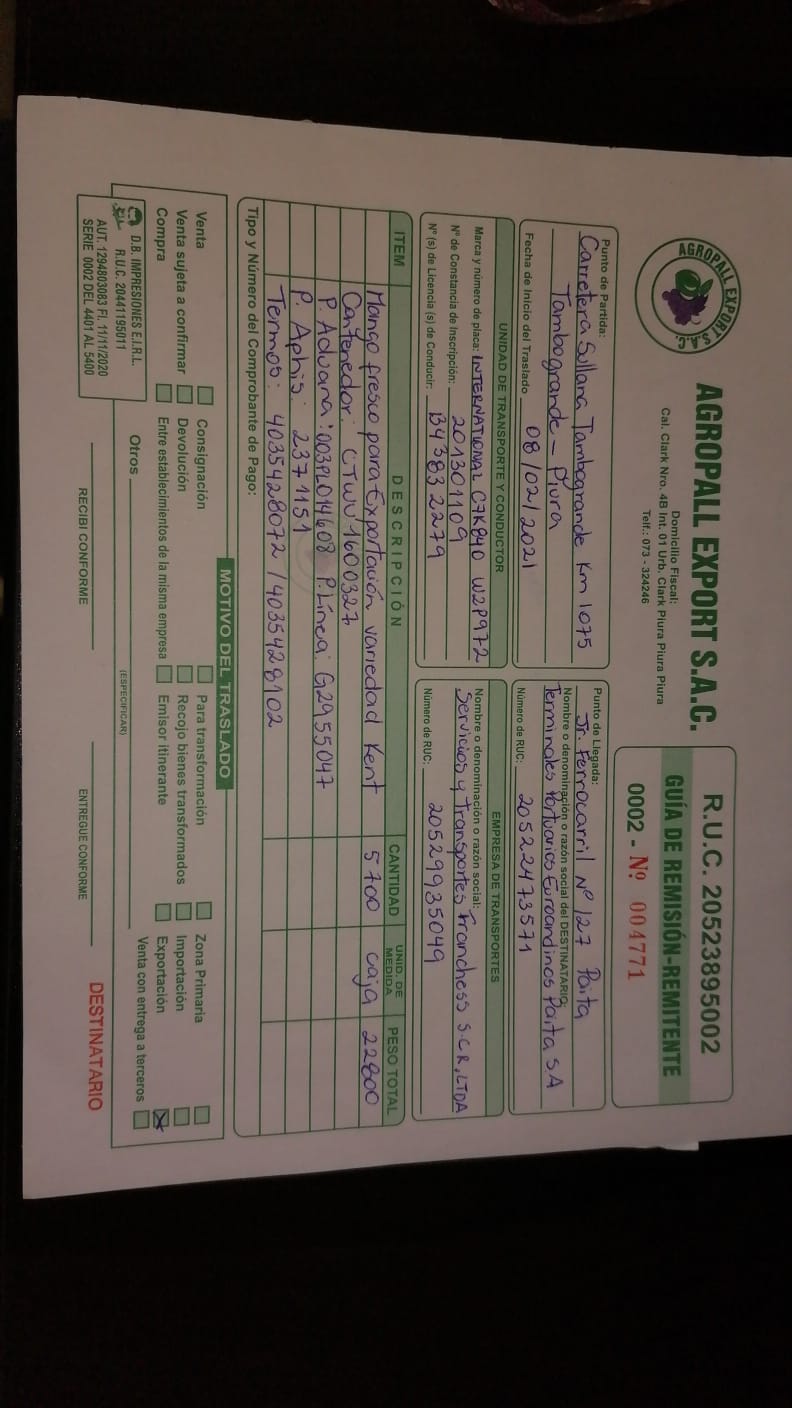 AGROPALL EXPORT S.A.C.
AGROPALL EXPORT S.A.C.
Domicilio Fiscal:
Cal. Clark Nro. 4B Int. 01 Urb. Clark Piura Piura Piura
Telf.: 073 - 324246
R.U.C. 20523895002
GUÍA DE REMISIÓN-REMITENTE
0002 - Nº 004771
Punto de Partida:
Carretera Sullana Tambogrande Km 1075
Tambogrande - Piura
Fecha de Inicio del Traslado 08/02/2021
Punto de Llegada:
Jr. Ferrocarril Nº 127 Paita
Nombre o denominación o razón social del DESTINATARIO:
Terminales Portuarios Euroandinos Paita SA
Número de RUC: 20522473571
UNIDAD DE TRANSPORTE Y CONDUCTOR
Marca y número de placa: INTERNATIONAL C7K840 W2P972
Nº de Constancia de Inscripción: 201301109
Nº (s) de Licencia (s) de Conducir: B43832279
EMPRESA DE TRANSPORTES
Nombre o denominación o razón social:
Servicios y Transportes Franchess S.C.R.LTDA
Número de RUC: 20529935049
ITEM DESCRIPCIÓN CANTIDAD UNID. DE MEDIDA PESO TOTAL
Mango fresco para Exportación variedad Kent 5700 caja 22800
Contenedor: CTWU 1600327
P. Aduana: 003PL014608 P.Línea: G2955047
P. Aphis: 2371151
Termos: 4035428072 / 4035428102
Tipo y Número del Comprobante de Pago:
MOTIVO DEL TRASLADO
Venta Consignación Para transformación Zona Primaria
Venta sujeta a confirmar Devolución Recojo bienes transformados Importación
Compra Entre establecimientos de la misma empresa Emisor itinerante Exportación X
Venta con entrega a terceros
Otros
(ESPECIFICAR)
D.B. IMPRESIONES E.I.R.L.
R.U.C. 20441195011
AUT. 1294803083 FI. 11/11/2020
SERIE 0002 DEL 4401 AL 5400
RECIBI CONFORME
ENTREGUE CONFORME
DESTINATARIO